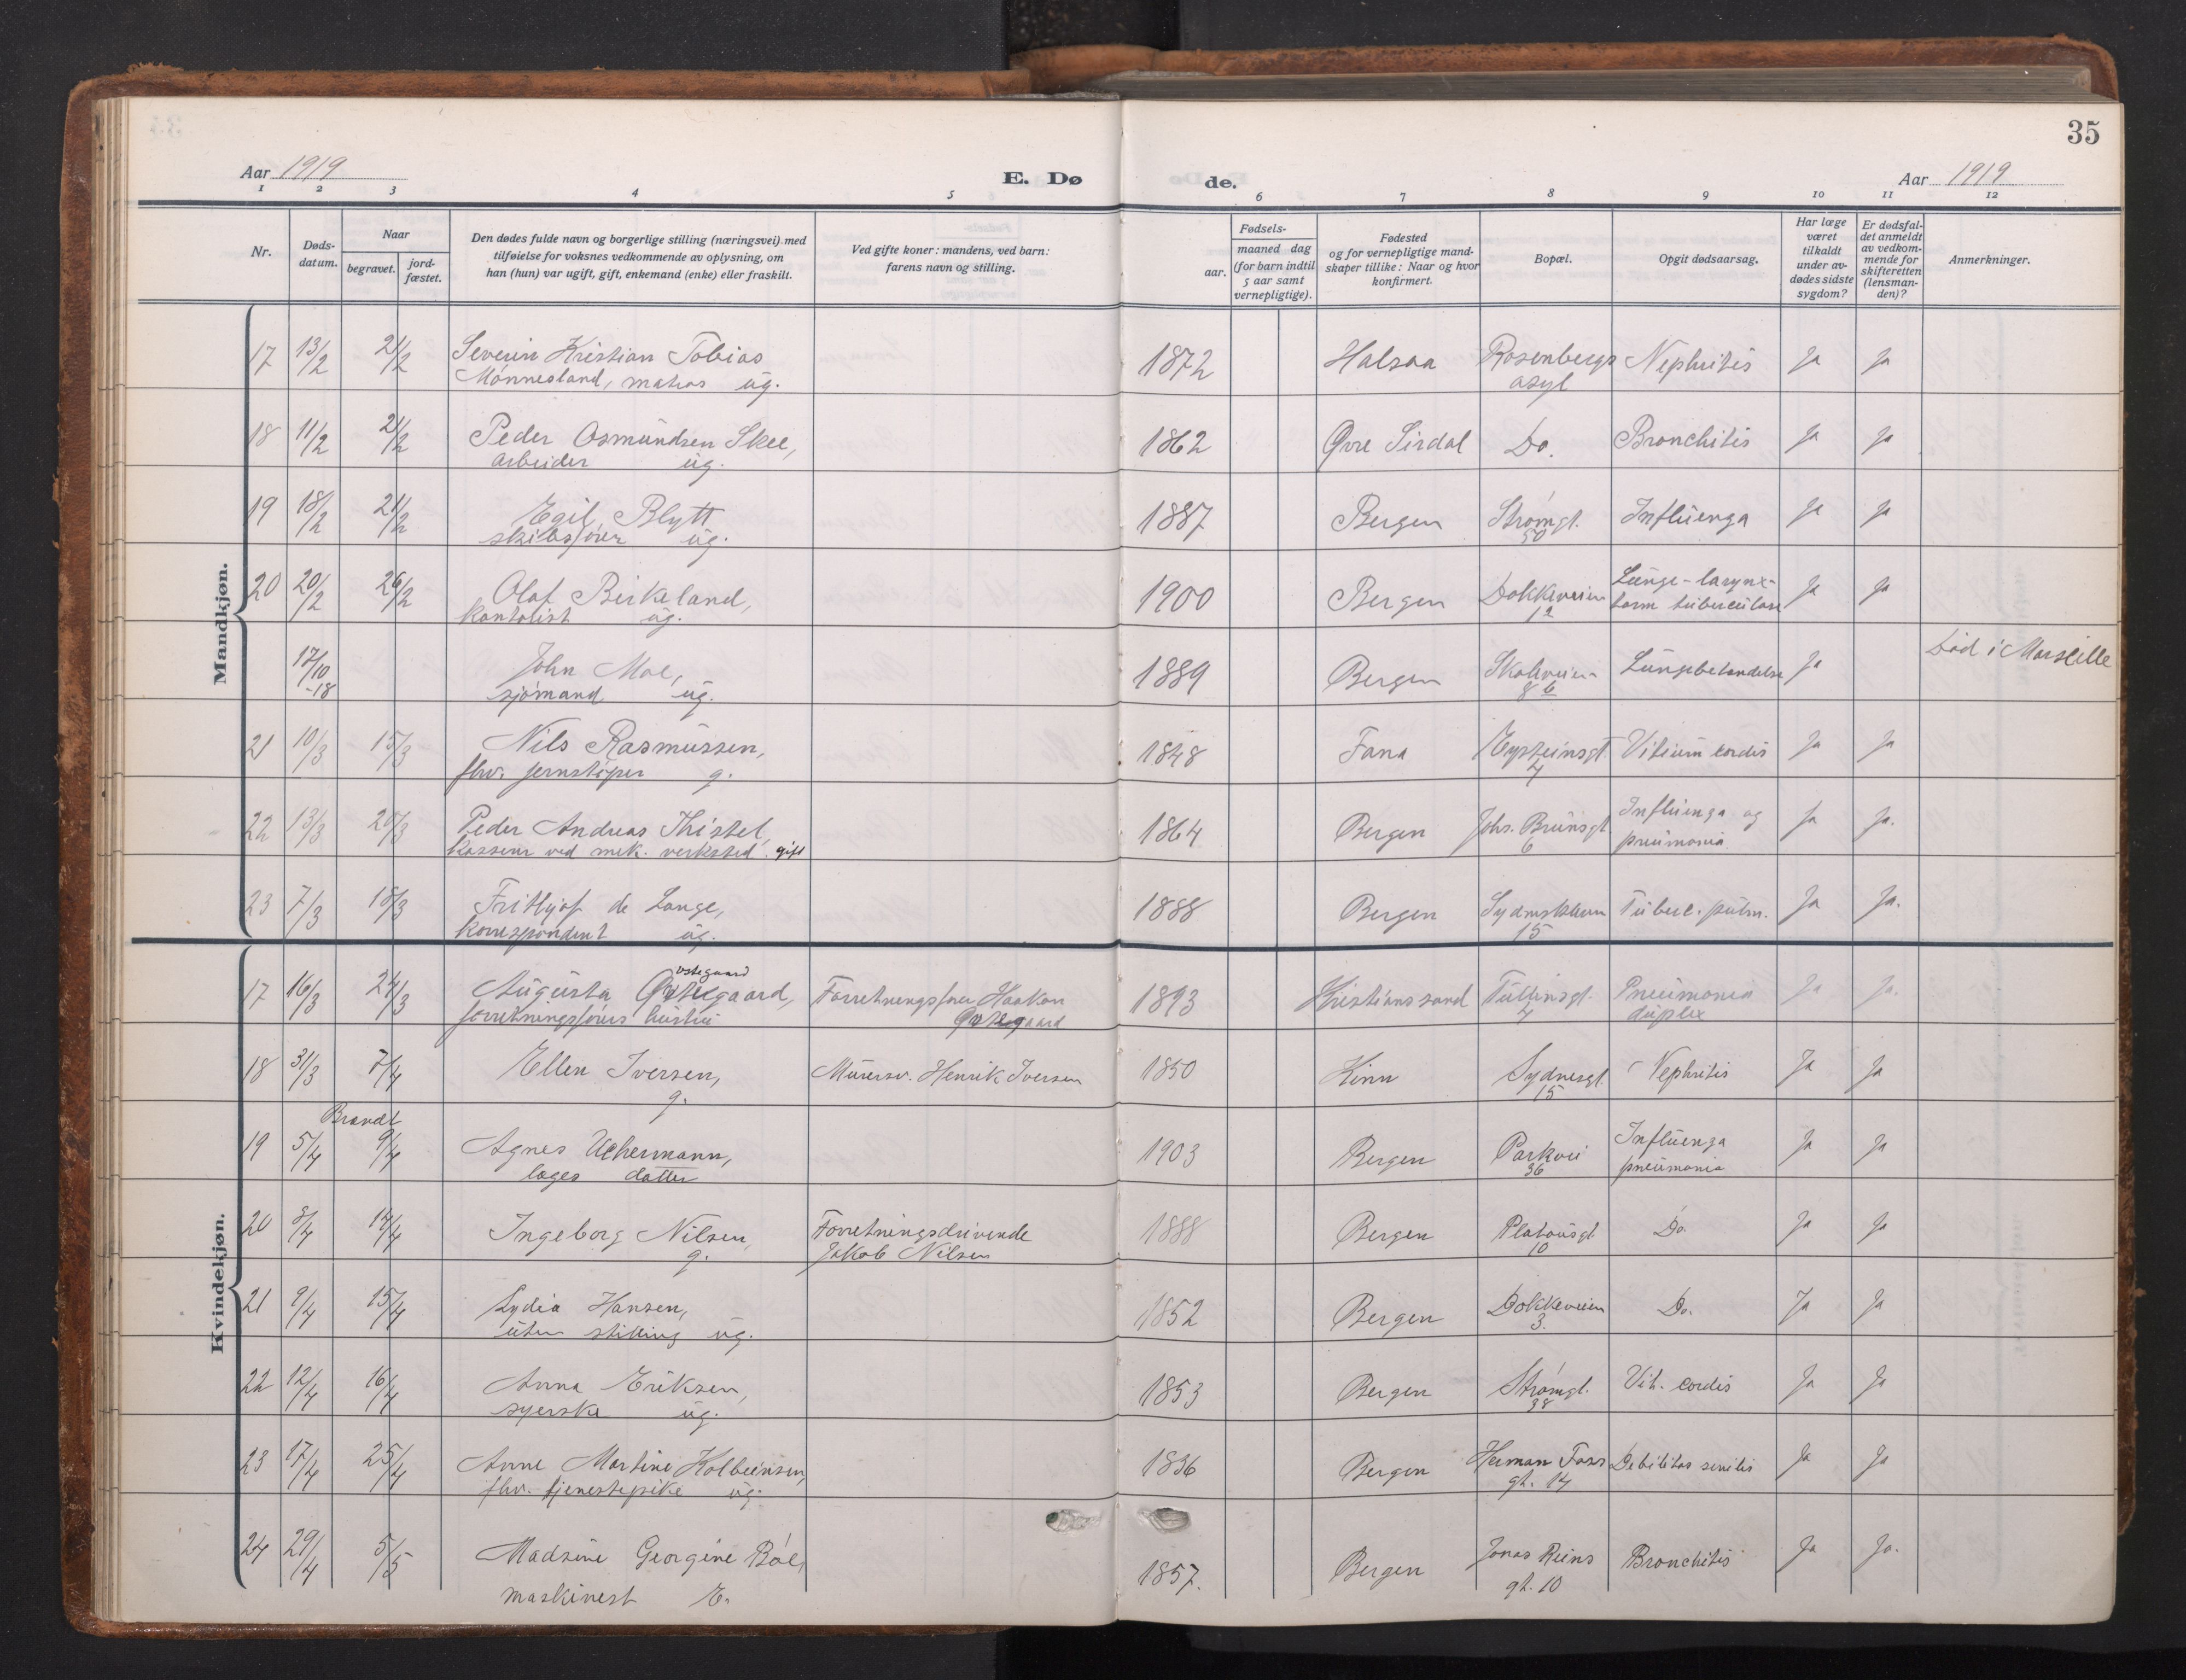 35
Aar 1919
E. Dø
de.
Aar 1919
1 2 3 4 5 6 7 8 9 10 11 12
Nr.
Døds-
datum.
Naar
begravet.
jord-
fæstet.
Den dødes fulde navn og borgerlige stilling (næringsvei) med
tilføielse for voksnes vedkommende av oplysning, om
han (hun) var ugift, gift, enkemand (enke) eller fraskilt.
Ved gifte koner: mandens, ved barn:
farens navn og stilling.
aar.
Fødsels-
maaned dag
(for barn indtil
5 aar samt
vernepligtige).
Fødested
og for vernepligtige mand-
skaper tillike: Naar og hvor
konfirmert.
Bopæl.
Opgit dødsaarsag.
Har læge
været
tilkaldt
under av-
dødes sidste
sygdom?
Er dødsfal-
det anmeldt
av vedkom-
mende for
skifteretten
(lensman-
den)?
Anmerkninger.
Mandkjøn.
17 13/2 21/2 Severin Kristian Tobias 1872 Halsaa Rosenbergs Nephritis Ja Ja
Mønnesland, matros ug. asyl
18 11/2 21/2 Peder Osmundsen Skee, 1862 Øvre Sirdal Do. Bronchitis Ja Ja
arbeider ug.
19 18/2 21/2 Egil Blytt 1887 Bergen Strømgt. Influenza Ja Ja
skibsfører ug. 50
20 20/2 26/2 Olaf Birkeland, 1900 Bergen Dokkeveien Lunge-larynx- Ja Ja
kontorist ug. 12 tarm tuberculose
17/10 John Moe, 1889 Bergen Skoleveien Lungebetændelse Ja Død i Marseille
-18 sjømand ug. 8 b
21 10/3 15/3 Nils Rasmussen, 1848 Fana Eysteinsgt Vitium cordis Ja Ja
fhv. jernstøper g. 4
22 13/3 20/3 Peder Andreas Thistel, 1864 Bergen Johs. Brunsgt. Influenza og Ja Ja.
Kasserer ved mek. verksted. gift 6 pneumonia
23 7/3 18/3 Frithjof de Lange, 1888 Bergen Sydneskleven Tuberc. pulm. Ja Ja.
korrespondent ug. 15
Kvindekjøn.
ostegaard
17 16/3 24/3 Augusta Østegaard, Forretningsfører Haakon 1893 Kristianssand Tullinsgt. Pneumonia Ja Ja.
forretningsførers hustru Østegaard 4 duplex
18 31/3 7/4 Ellen Iversen, Murersv. Henrik Iversen 1850 Kinn Sydnesgt. Nephritis Ja Ja
g. 15
Brandt
19 5/4 9/4 Agnes Uchermann, 1903 Bergen Parkvei Influenza Ja Ja
læges datter 36 pneumonia
20 8/4 14/4 Ingeborg Nilsen, Forretningsdrivende 1888 Bergen Platousgt Do. Ja Ja
g. Jakob Nilsen 10
21 9/4 15/4 Lydia Hansen, 1852 Bergen Dokkeveien Do. Ja Ja
uten stilling ug. 3.
22 12/4 16/4 Anna Eriksen, 1853 Bergen Strømgt. Vit. cordis Ja Ja
syerske ug. 38
23 17/4 25/4 Anne Martine Kolbeinsen, 1836 Bergen Herman Foss Debilitas senilis Ja Ja
fhv. tjenestepike ug. gt. 14
24 29/4 5/5 Madsine Georgine Bøe, 1857. Bergen Jonas Reins Bronchitis Ja Ja.
maskinest E. gt. 10